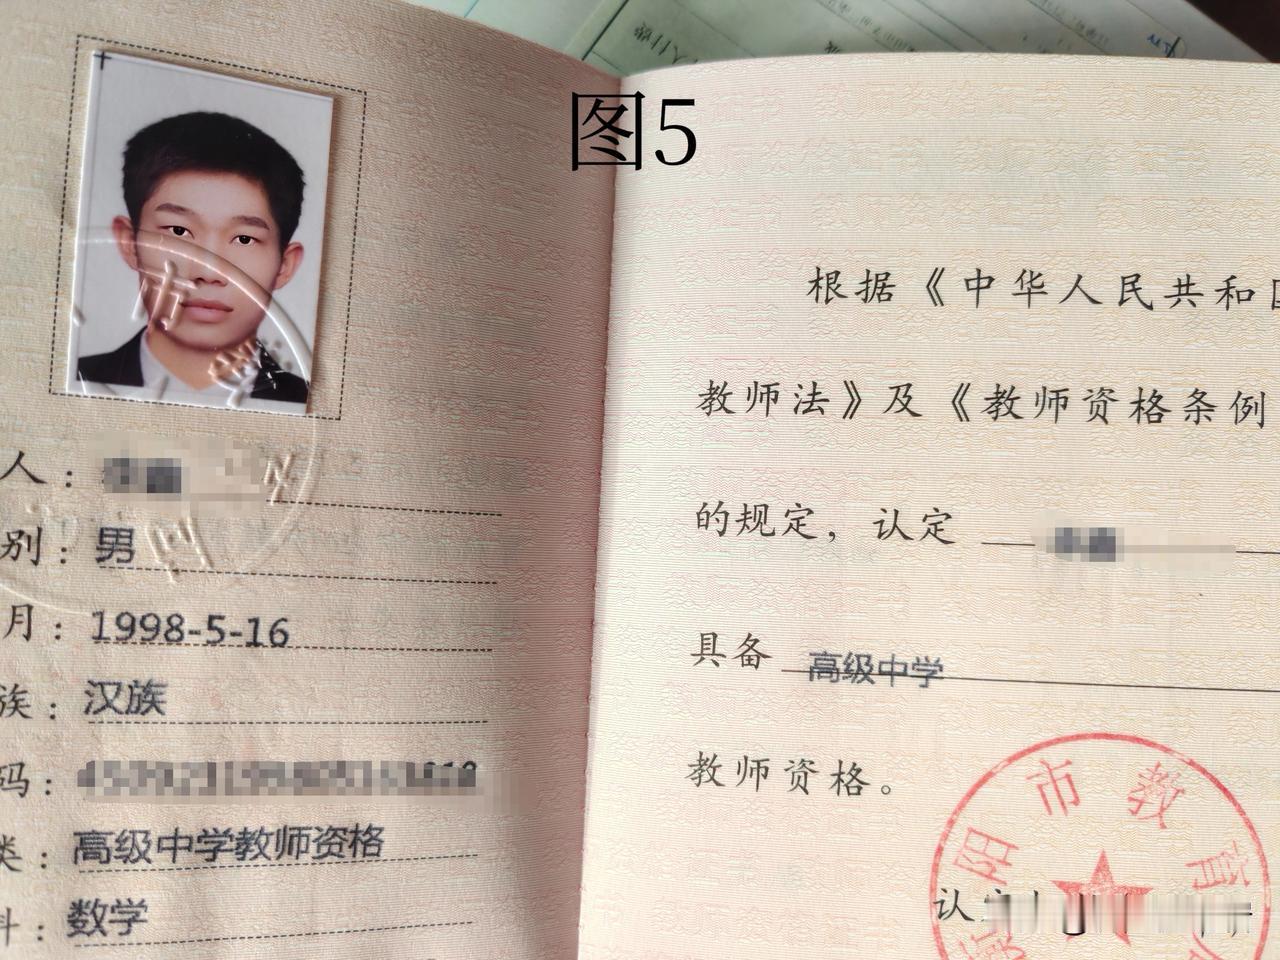 图5
人：
别：男
月：1998-5-16
族：汉族
码：
类：高级中学教师资格
科：数学
根据《中华人民共和
教师法》及《教师资格条例
的规定，认定
具备 高级中学
教师资格。
阳市教育
认定